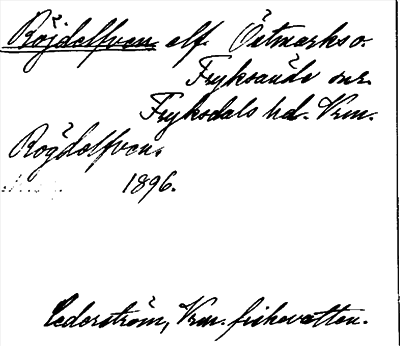 Röjdelfven elf. Östmarks o.
Fryksände snr.
Fryksdals hd. Vrm.
Rögdelfven.
1896.
Cederström, Vrm. fiskevatten.